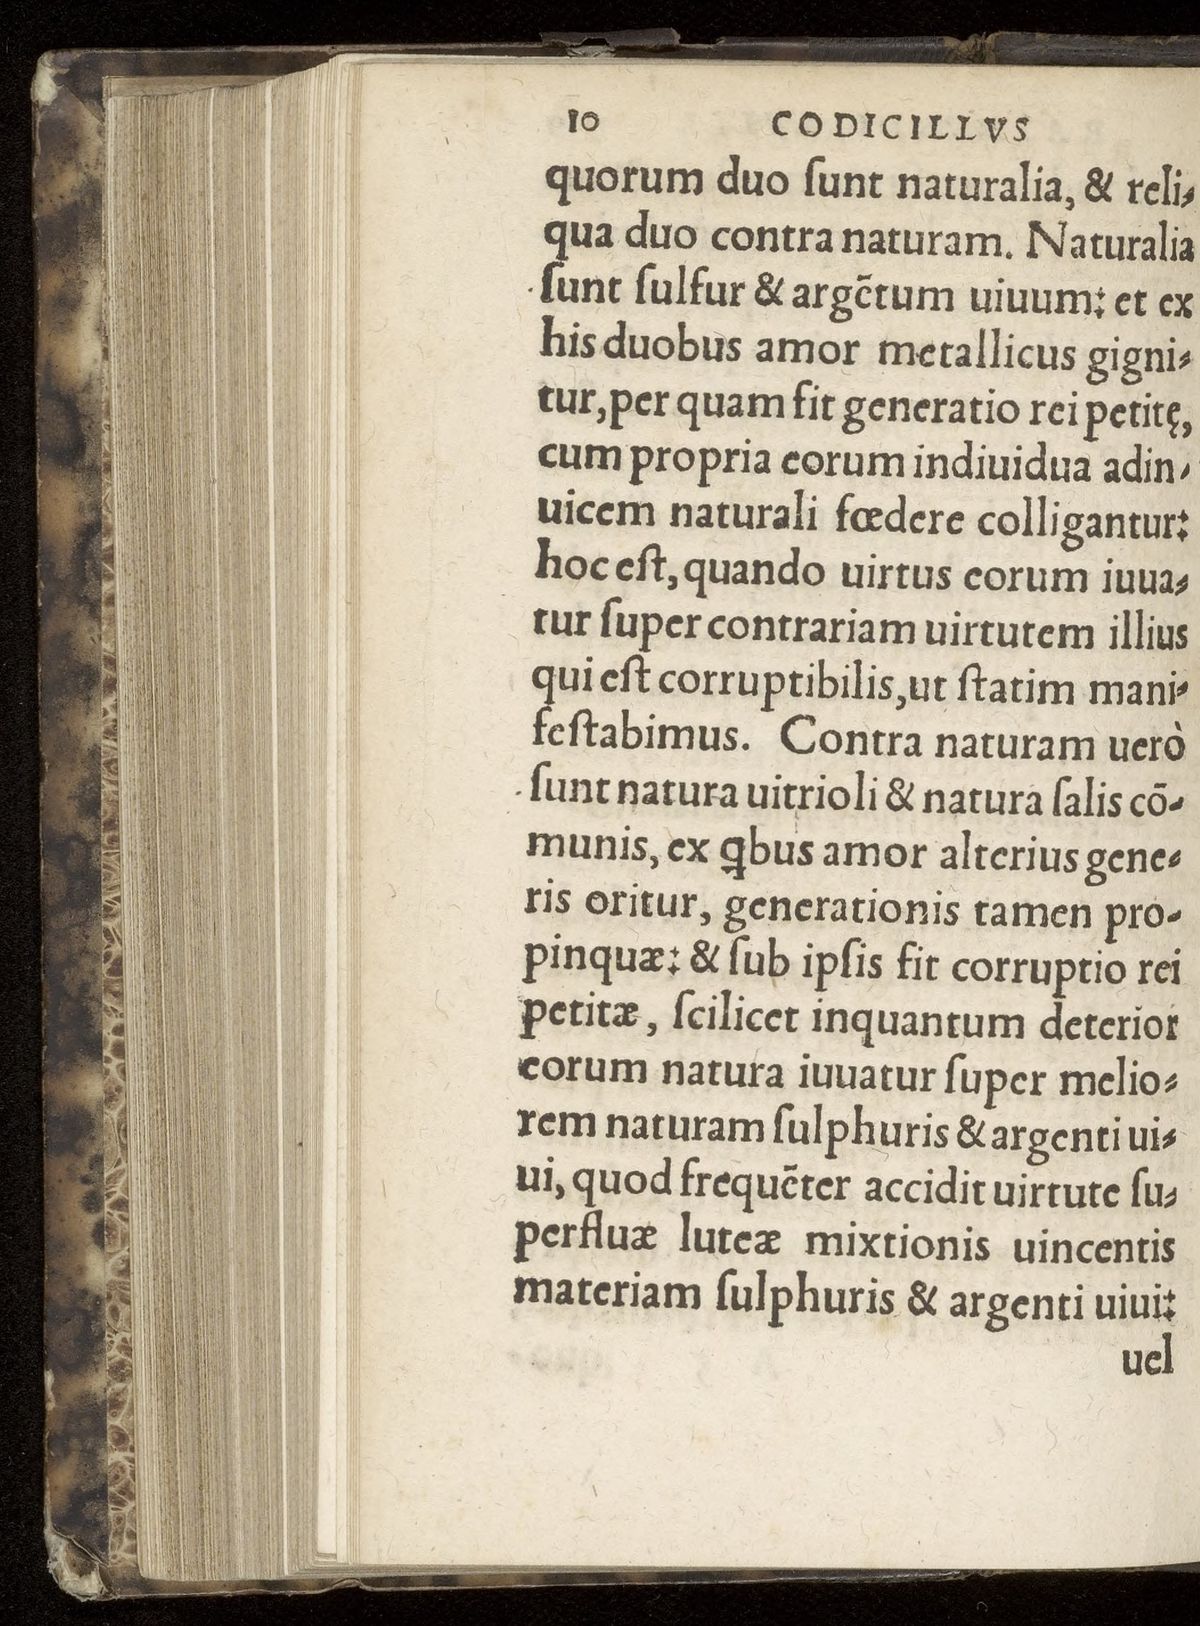 10 CODICILLVS
quorum duo ſunt naturalia, & reli⸗
qua duo contra naturam. Naturalia
ſunt ſulfur & argẽtum uiuum: et ex
his duobus amor metallicus gigni⸗
tur, per quam fit generatio rei petitę,
cum propria eorum indiuidua adin⸗
uicem naturali fœdere colligantur:
hoc eſt, quando uirtus eorum iuua⸗
tur ſuper contrariam uirtutem illius
qui eſt corruptibilis, ut ſtatim mani⸗
feſtabimus. Contra naturam uerò
ſunt natura uitrioli & natura ſalis cō⸗
munis, ex ꝗbus amor alterius gene⸗
ris oritur, generationis tamen pro⸗
pinquæ: & ſub ipſis fit corruptio rei
petitæ, ſcilicet inquantum deterior
eorum natura iuuatur ſuper melio⸗
rem naturam ſulphuris & argenti ui⸗
ui, quod frequẽter accidit uirtute ſu⸗
perfluæ luteæ mixtionis uincentis
materiam ſulphuris & argenti uiui:
uel